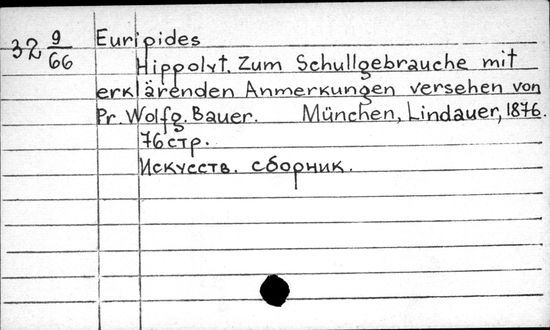 32 9/66
Euripides
Hippolyt. Zum Schullgebrauche mit
erklärenden Anmerkungen versehen von
Pr. Wolfg. Bauer. München, Lindauer, 1876.
76 стр.
Искусств. сборник.